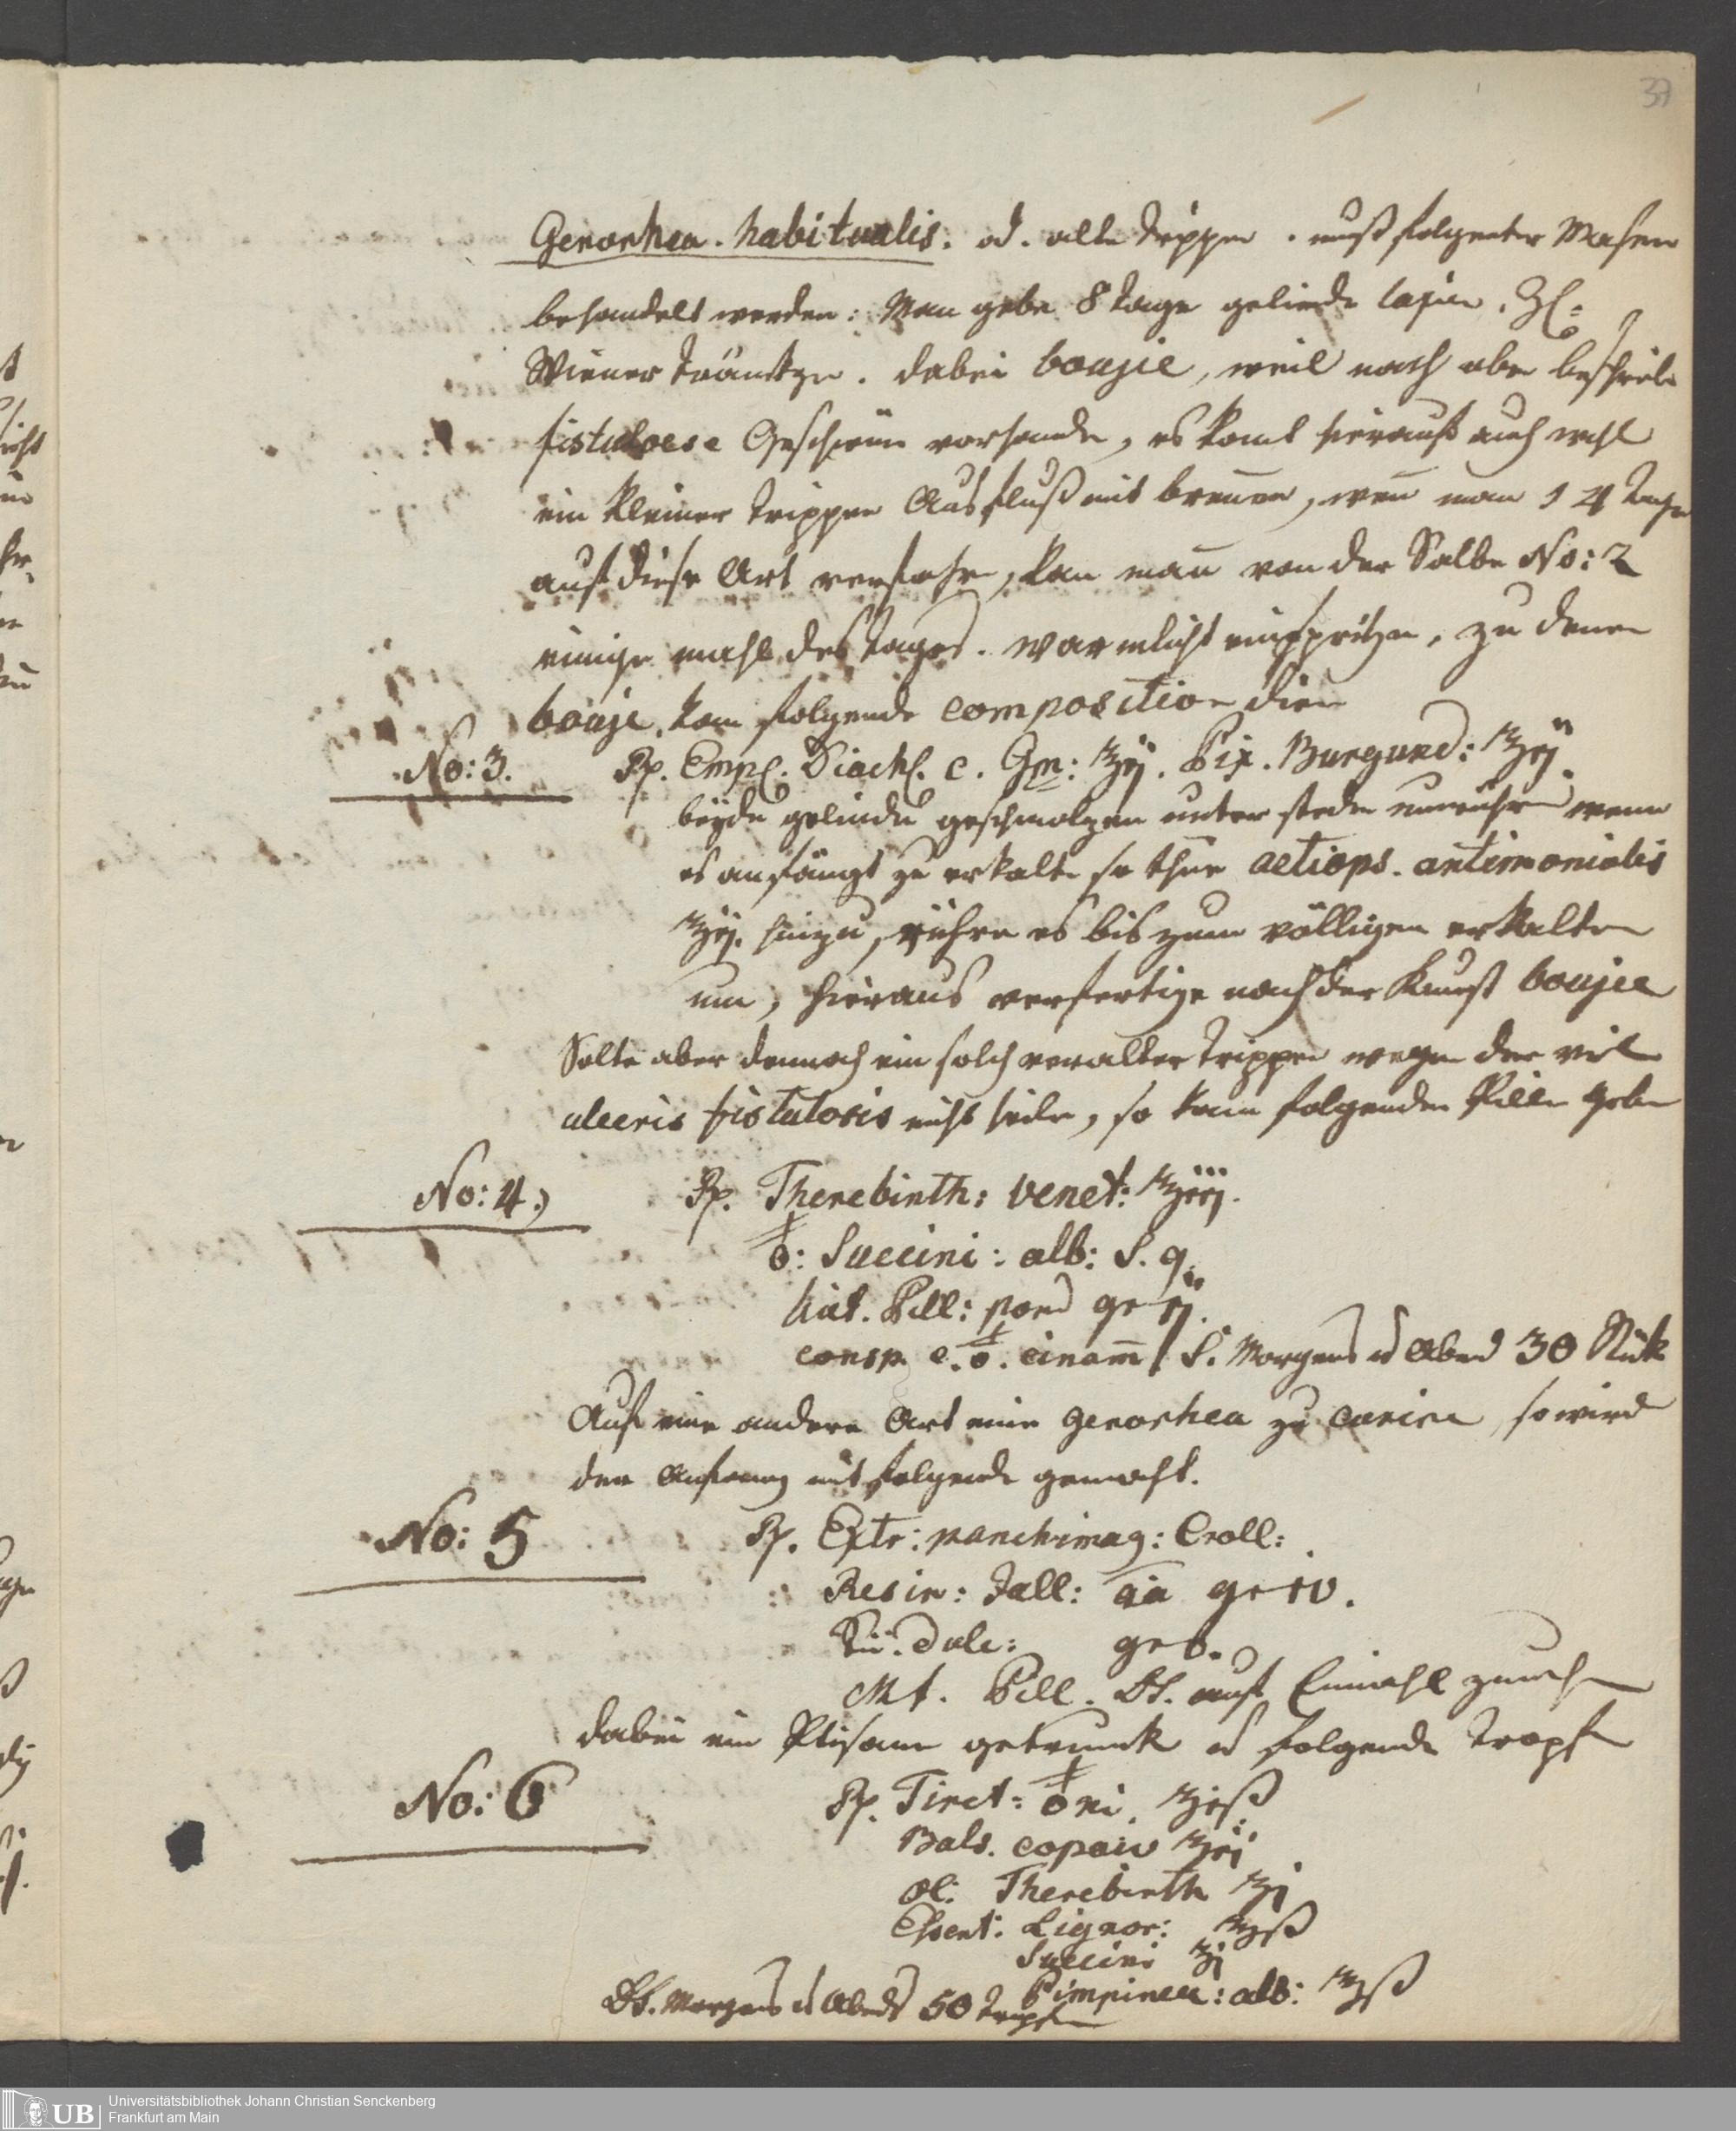 37
Genorhea. habitualis. od. alte Tripper. muß folgenter Masen
behandelt werden: Man gebe 8 Tage gelinde laxir. Zl:
Wiener Tränkgen. dabei boujie, weil noch oben beschrieb
fistuloese Geschwüre vorhande, es komt hierauf auch wohl
ein kleiner Tripper Ausfluß mit breñen, weñ man 14 Tage
auf diese Art verfahre, kan mañ von der Salbe No: 2
einige mahl des Tages. warmlicht einspritzen, zu denen
bouje. kan folgende composition dien
No: 3. Rp. Empl. Diachl. c. Gm: ℥ij. Pix. Burgund: ℥ij.
beyde gelinde geschmolzen unter steden umrühren wenn
es anfängt zu erkalte so thue aetiops. antimonialis
℥ij. hinzu, rühre es bis zum völligen erkalten
um, hieraus verfertige nach der Kunst boujee
Solte aber dennoch ein solch veralter Tripper wegen der viel
ulceris fistulosis nicht heile, so kann folgende Pille geben
No: 4.) Rp. Therebinth: venet: ℥iij.
: Succini: alb: S. q.
fiat. Pill: pond gr ij.
consp. c. . cinam̄ / S. Morgens u Abend 30 Stück
Auf eine andere Art eine genorhea zu curire, so wird
der Anfang mit folgende gemacht.
No: 5 Rp. Extr: panchimag: Croll:
Resin: Jall: āa gr iv.
dulc: gr 6.
Mf. Pill. DS. auf Einmahl zu neh
dabei ein Ptisane getrunk u folgende Tropfe
No: 6 Rp. Tinct: ri. ℥iß
Bals. copaiv ℥ij
ol: Therebinth ℥j
Essent: Lignor: ℥ß
Succini ℥j
Pimpinell: alb: ℥ß
DS. Morgens u Abends 50 Tropfen
UB Universitätsbibliothek Johann Christian Senckenberg
Frankfurt am Main